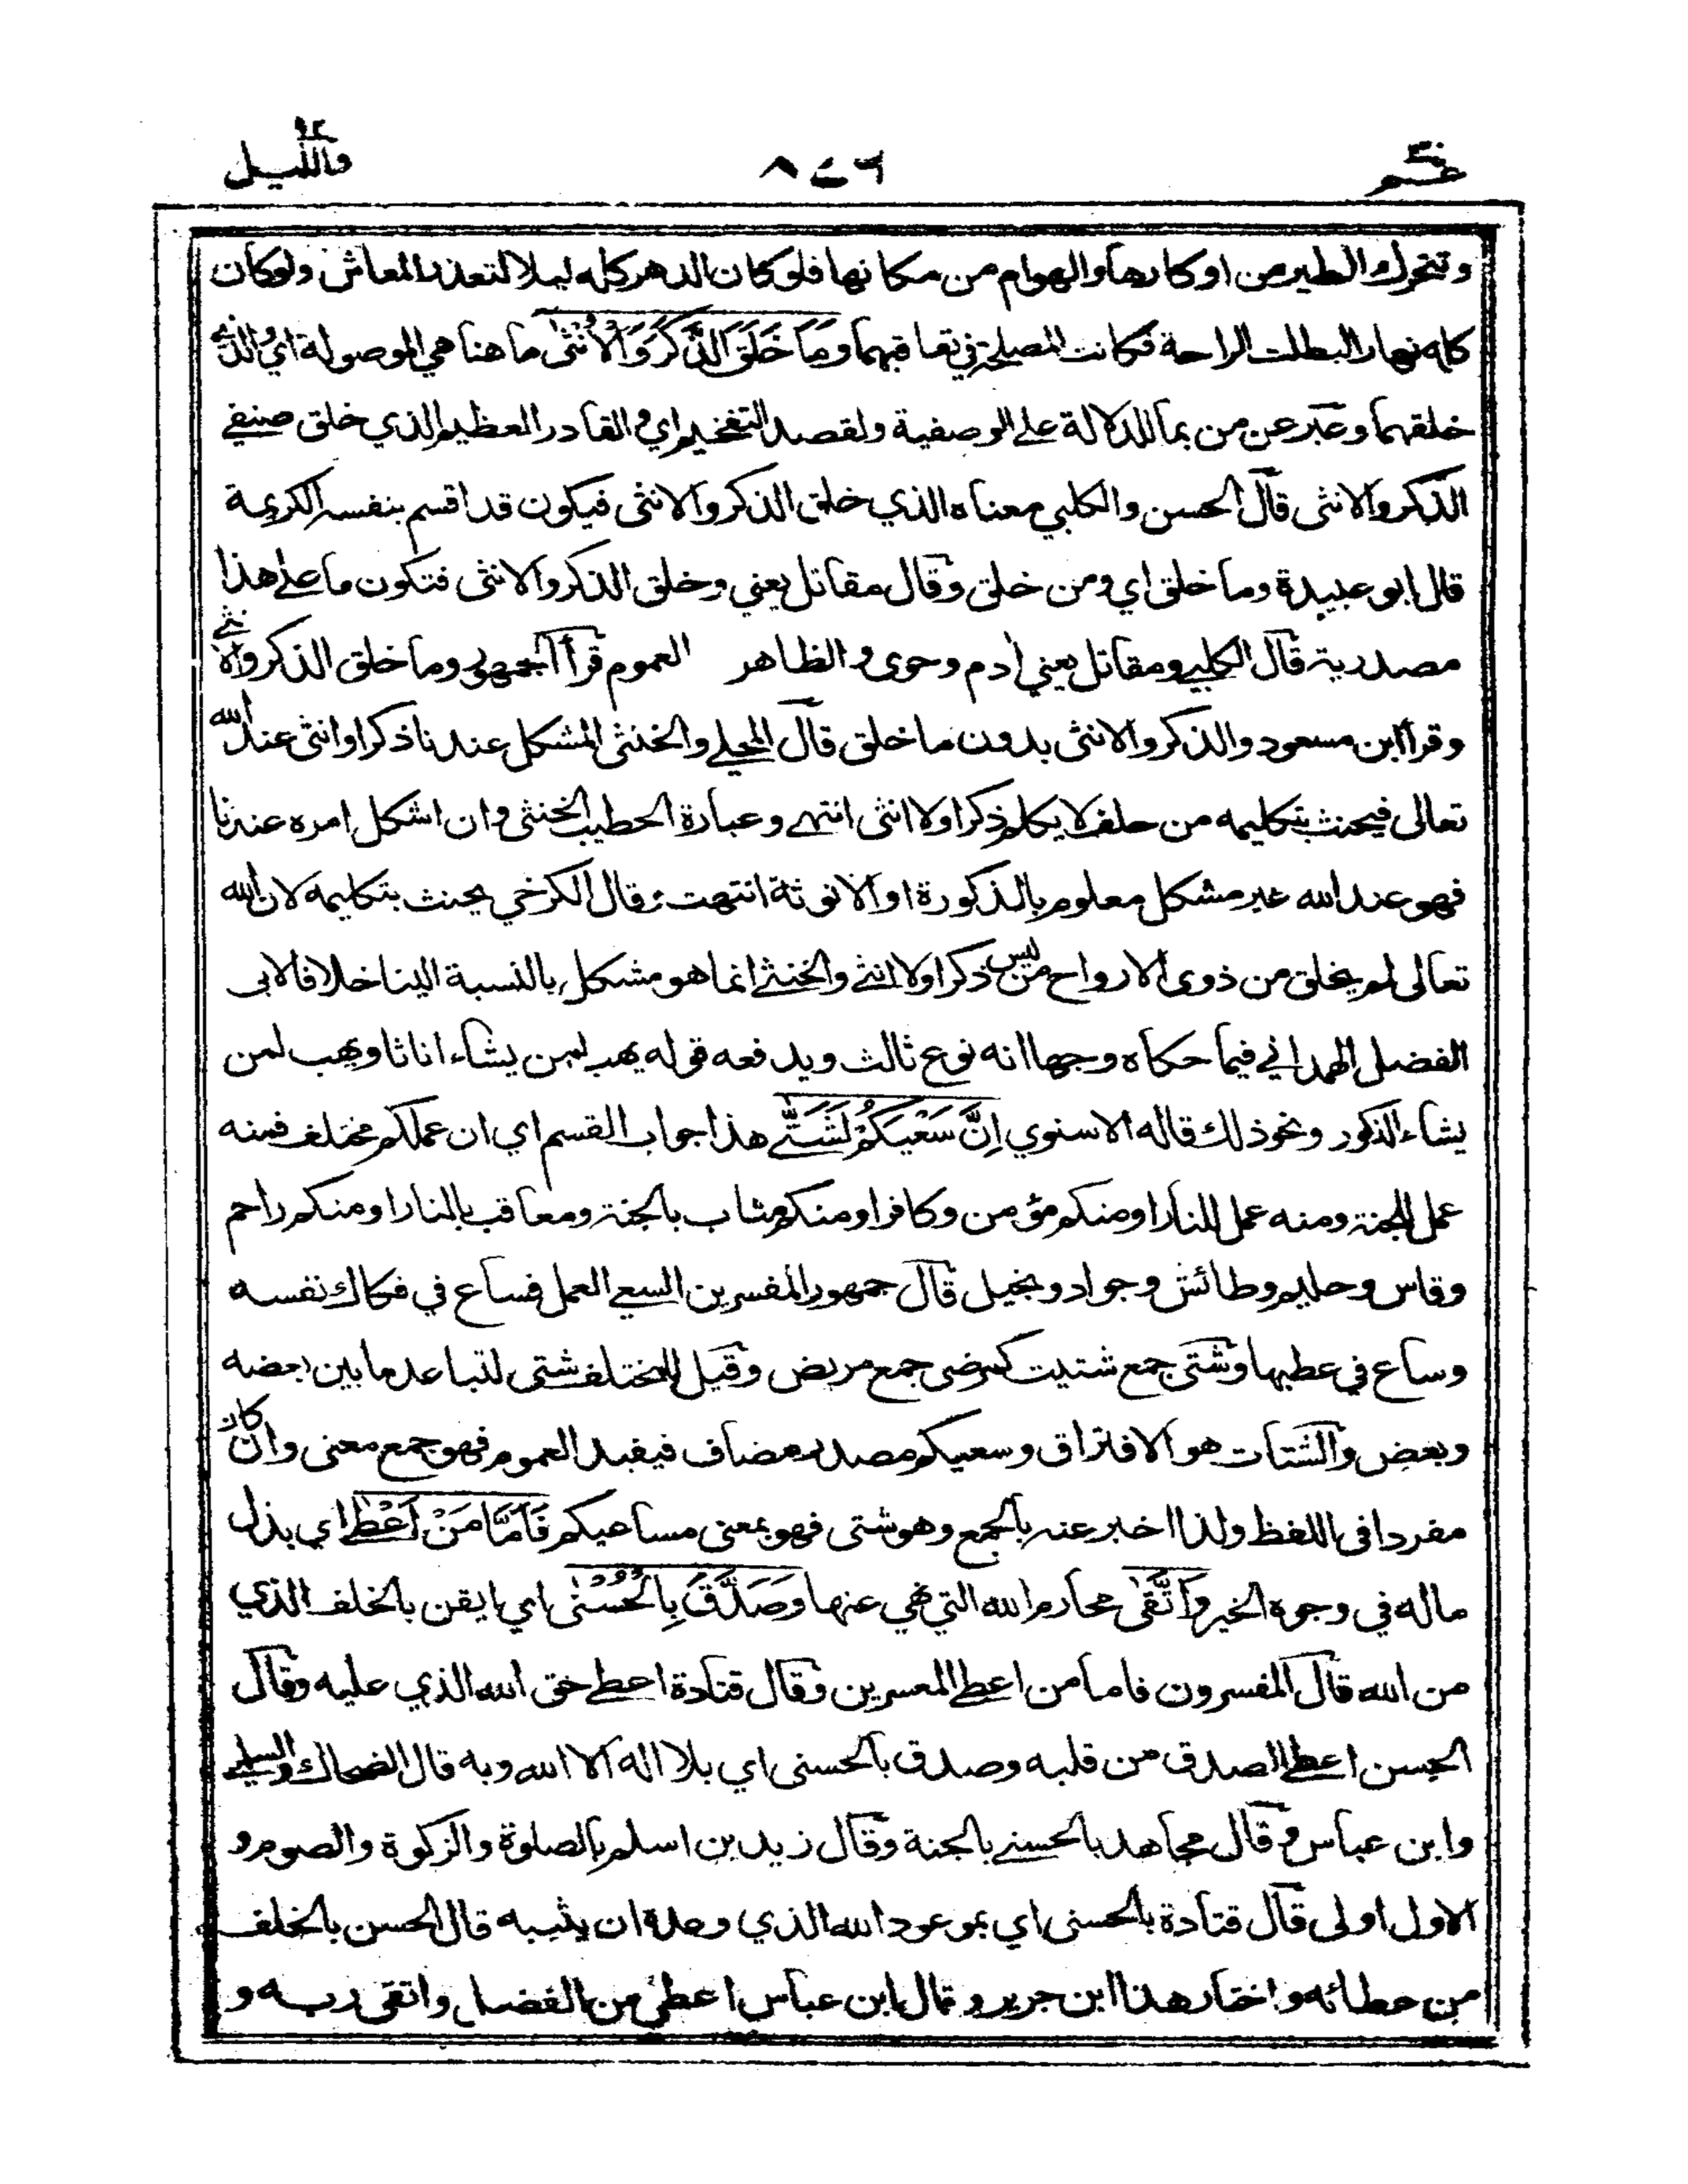 عم ٣٠ ٨٤٦ والليل ٩٢
وتتحرك الطير من اوكارها والهوام من مكانها فلوكان الدهر كله ليلا لتعذر المعاش ولوكان
كله نهارا لبطلت الراحة فكانت المصلحة في تعاقبهما وَمَا خَلَقَ الذَّكَرَ وَالْاُنْثٰى ما هنا هي الموصولة اي والذي
خلقهما وعبر عن من بما للدلالة على الوصفية ولقصد التفخيم اي والقادر العظيم الذي خلق صنفي
الذكر والانثى قال الحسن والكلبي معناه الذي خلق الذكر والانثى فيكون قد اقسم بنفسه الكريمة
قال ابو عبيدة وما خلق اي ومن خلق وقال مقاتل يعني وخلق الذكر والانثى فتكون ما على هذا
مصدرية قال الكلبي ومقاتل يعني ادم وحوى والظاهر العموم قرأ الجمهور وما خلق الذكر والانثى
وقرأ ابن مسعود والذكر والانثى بدون ما خلق قال المحلي والخنثى المشكل عندنا ذكر او انثى عند الله
تعالى فيحنث بتكليمه من حلف لا يكلم ذكرا ولا انثى انتهى وعبارة الخطيب الخنثى وان اشكل امره عندنا
فهو عند الله غير مشكل معلوم بالذكورة او الانوثة انتهت وقال الكرخي يحنث بتكليمه لان الله
تعالى لم يخلق من ذوى الارواح من ليس ذكرا ولا انثى والخنثى انما هو مشكل بالنسبة الينا خلافا لابى
الفضل الهمداني فيما حكاه وجها انه نوع ثالث ويدفعه قوله يهب لمن يشاء اناثا ويهب لمن
يشاء الذكور ونحو ذلك قاله الاسنوي اِنَّ سَعْيَكُمْ لَشَتّٰى هذا جواب القسم اي ان عملكم مختلف فمنه
عمل للجنة ومنه عمل للنار او منكم مؤمن وكافر او منكم مثاب بالجنة ومعاقب بالنار او منكم راحم
وقاس وحليم وطائش وجواد وبخيل قال جمهور المفسرين السعي العمل فساع في فكاك نفسه
وساع في عطبها وشتى جمع شتيت كمرضى جمع مريض وقيل للمختلف شتى لتباعد ما بين بعضه
وبعض والشتات هو الافتراق وسعيكم مصدر مضاف فيفيد العموم فهو جمع معنى وان كان
مفردا فى اللفظ ولذا اخبر عنه بالجمع وهو شتى فهو بمعنى مساعيكم فَاَمَّا مَنْ اَعْطٰى اي بذل
ماله في وجوه الخير وَاتَّقٰى محارم الله التي نهى عنها وَصَدَّقَ بِالْحُسْنٰى اي ايقن بالخلف الذي
من الله قال المفسرون فاما من اعطى المعسرين وقال قتادة اعطى حق الله الذي عليه وقال
الحسن اعطى الصدق من قلبه وصدق بالحسنى اي بلا اله الا الله وبه قال الضحاك والسلمي
وابن عباس وقال مجاهد بالحسنى بالجنة وقال زيد بن اسلم بالصلوة والزكوة والصوم و
الاول اولى قال قتادة بالحسنى اي بموعود الله الذي وعده ان يثيبه قال الحسن بالخلف
من عطائه واختار هذا ابن جرير وقال ابن عباس اعطى من الفضل واتقى ربه و